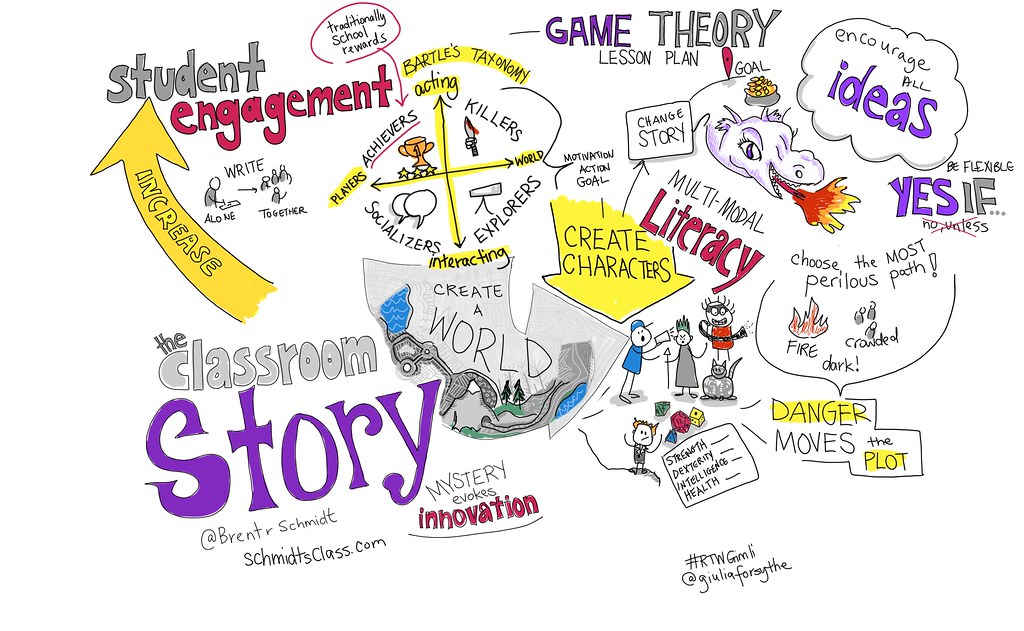 student
engagement
traditionally
school
rewards
INCREASE
WRITE
ALONE
TOGETHER
BARTLE'S TAXONOMY
acting
KILLERS
ACHIEVERS
WORLD
PLAYERS
SOCIALIZERS
EXPLORERS
interacting
GAME THEORY
LESSON PLAN
GOAL
CHANGE
STORY
MOTIVATION
ACTION
GOAL
encourage
ALL
ideas
BE FLEXIBLE
YES IF...
no, unless
MULTI-MODAL
Literacy
CREATE
CHARACTERS
choose, the MOST
perilous path!
FIRE
crowded
dark!
DANGER
MOVES the
PLOT
CREATE
A
WORLD
the
classroom
Story
MYSTERY
evokes
innovation
STRENGTH
DEXTERITY
INTELLIGENCE
HEALTH
@Brentr Schmidt
schmidtsClass.com
#RTWGimli
@giuliaforsythe